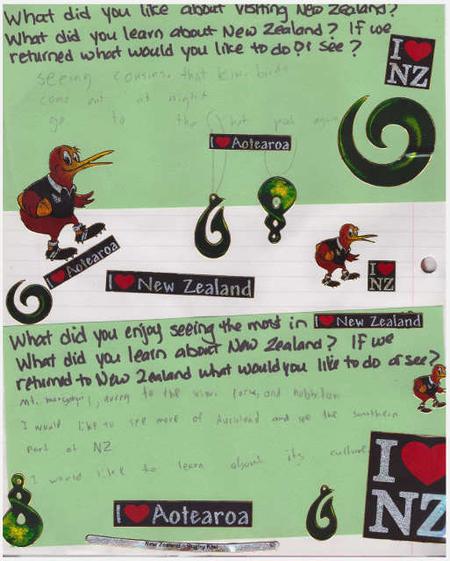 What did you like about visiting New Zealand?
What did you learn about New Zealand? If we
returned what would you like to do or see?
I ❤ NZ
seeing cousins, that kiwi birds
come out at night
go to the hot pools again
I ❤ Aotearoa
I ❤ Aotearoa
I ❤ New Zealand
I ❤ NZ
What did you enjoy seeing the most in I ❤ New Zealand
What did you learn about New Zealand? If we
returned to New Zealand what would you like to do or see?
Mt. to the and hobbiton
I would like to see more of Auckland and see the southern
part of NZ
I would like to learn about its culture.
I ❤ NZ
I ❤ Aotearoa
New Zealand